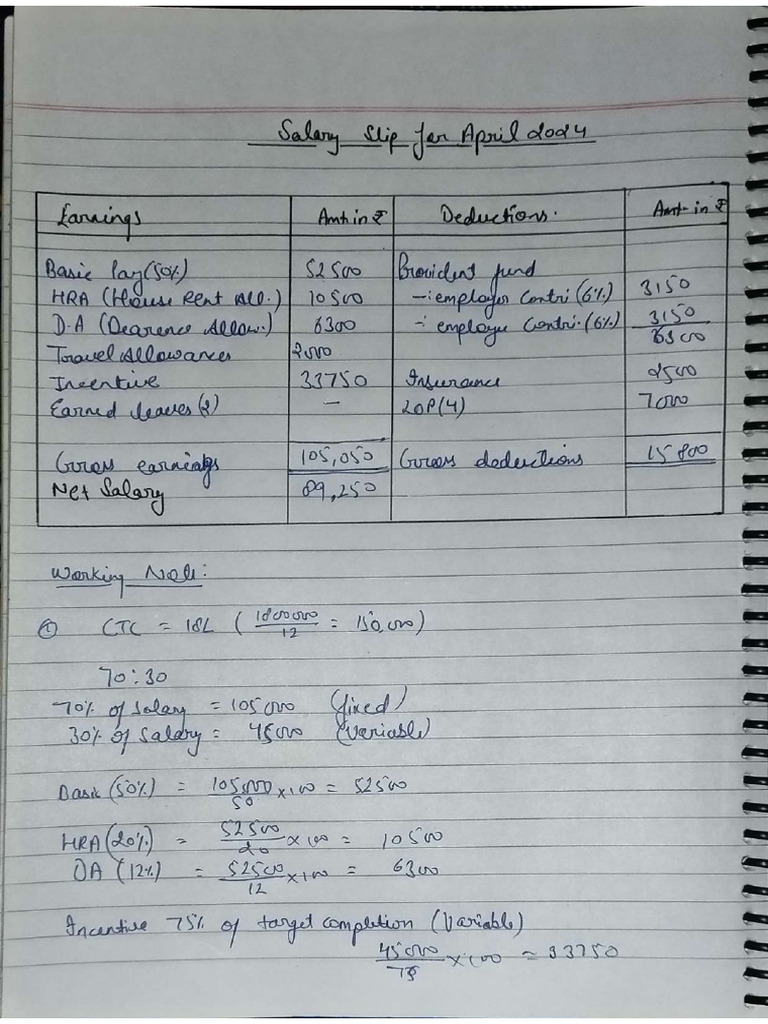 Salary Slip for April 2024
Earnings Amt in ₹ Deductions. Amt- in ₹
Basic Pay (50%) 52500 Provident fund
HRA (House Rent All.) 10500 -: employer Contri (6%) 3150
D.A (Dearence Allow.) 6300 -: employee Contri. (6%) 3150
6300
Travel Allowances 2000
Incentive 33750 Insurance 2500
Earned leaves (2) — LOP(4) 7000
Gross earnings 105,050 Gross deductions 15800
Net Salary 89,250
Working Note:
① CTC = 18L ( 1800000/12 = 150,000)
70:30
70% of salary = 105000 (fixed)
30% of salary = 45000 (Variable)
Basic (50%) = 105000/50 x100 = 52500
HRA (20%) = 52500/20 x100 = 10500
DA (12%) = 52500/12 x100 = 6300
Incentive 75% of target completion (Variable)
45000/75 x100 = 33750